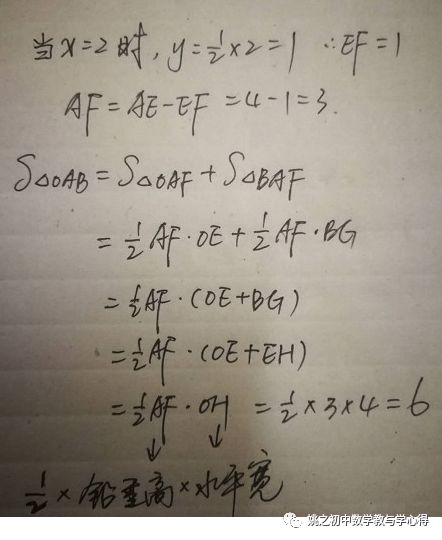 当x=2时，y=½×2=1 ∴EF=1
AF=AE-EF=4-1=3.
S△OAB=S△OAF+S△BAF
=½AF·OE+½AF·BG
=½AF·(OE+BG)
=½AF·(OE+EH)
=½AF·OH=½×3×4=6
↓ ↓
½×铅垂高×水平宽
姚之初中数学教与学心得